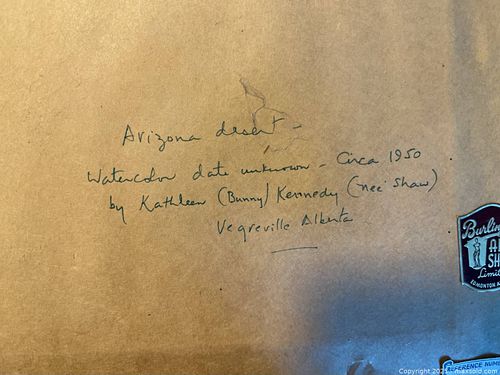 Arizona desert -
Watercolor date unknown - Circa 1950
by Kathleen (Bunny) Kennedy (neé Shaw)
Vegreville Alberta
Burlin
A
SH
Limi
EDMONTON A
REFERENCE NUM
Copyright 202 maxsold.com